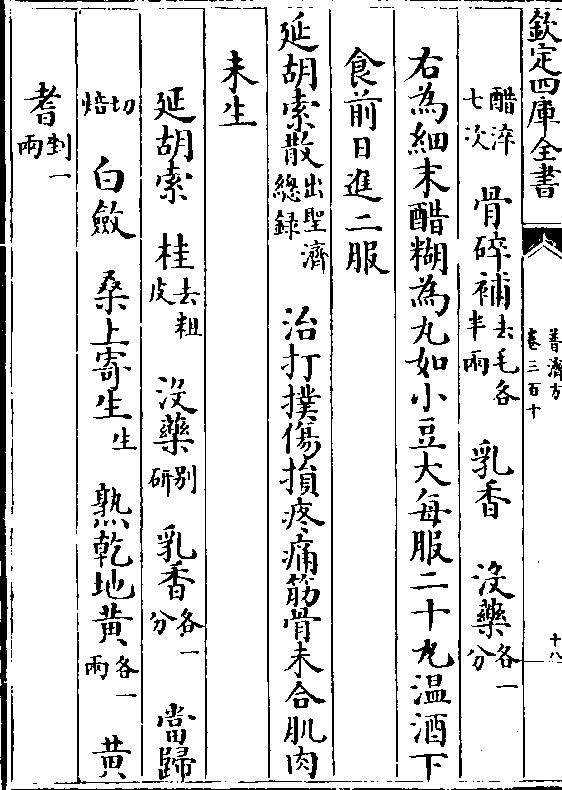 欽定四庫全書
普濟方
卷三百十
十八
醋淬七次　骨碎補去毛各半兩　乳香　沒藥各一分
右為細末醋糊為丸如小豆大每服二十丸温酒下
食前日進二服
延胡索散出聖濟總録　治打撲傷損疼痛筋骨未合肌肉
未生
延胡索　桂去粗皮　沒藥别研　乳香各一分　當歸
切焙　白斂　桑上寄生生　熟乾地黄各一兩　黄
耆剉一兩